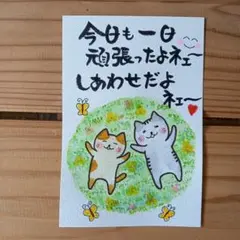 今日も一日
頑張ったよネェ〜
しあわせだよ
ネェ〜